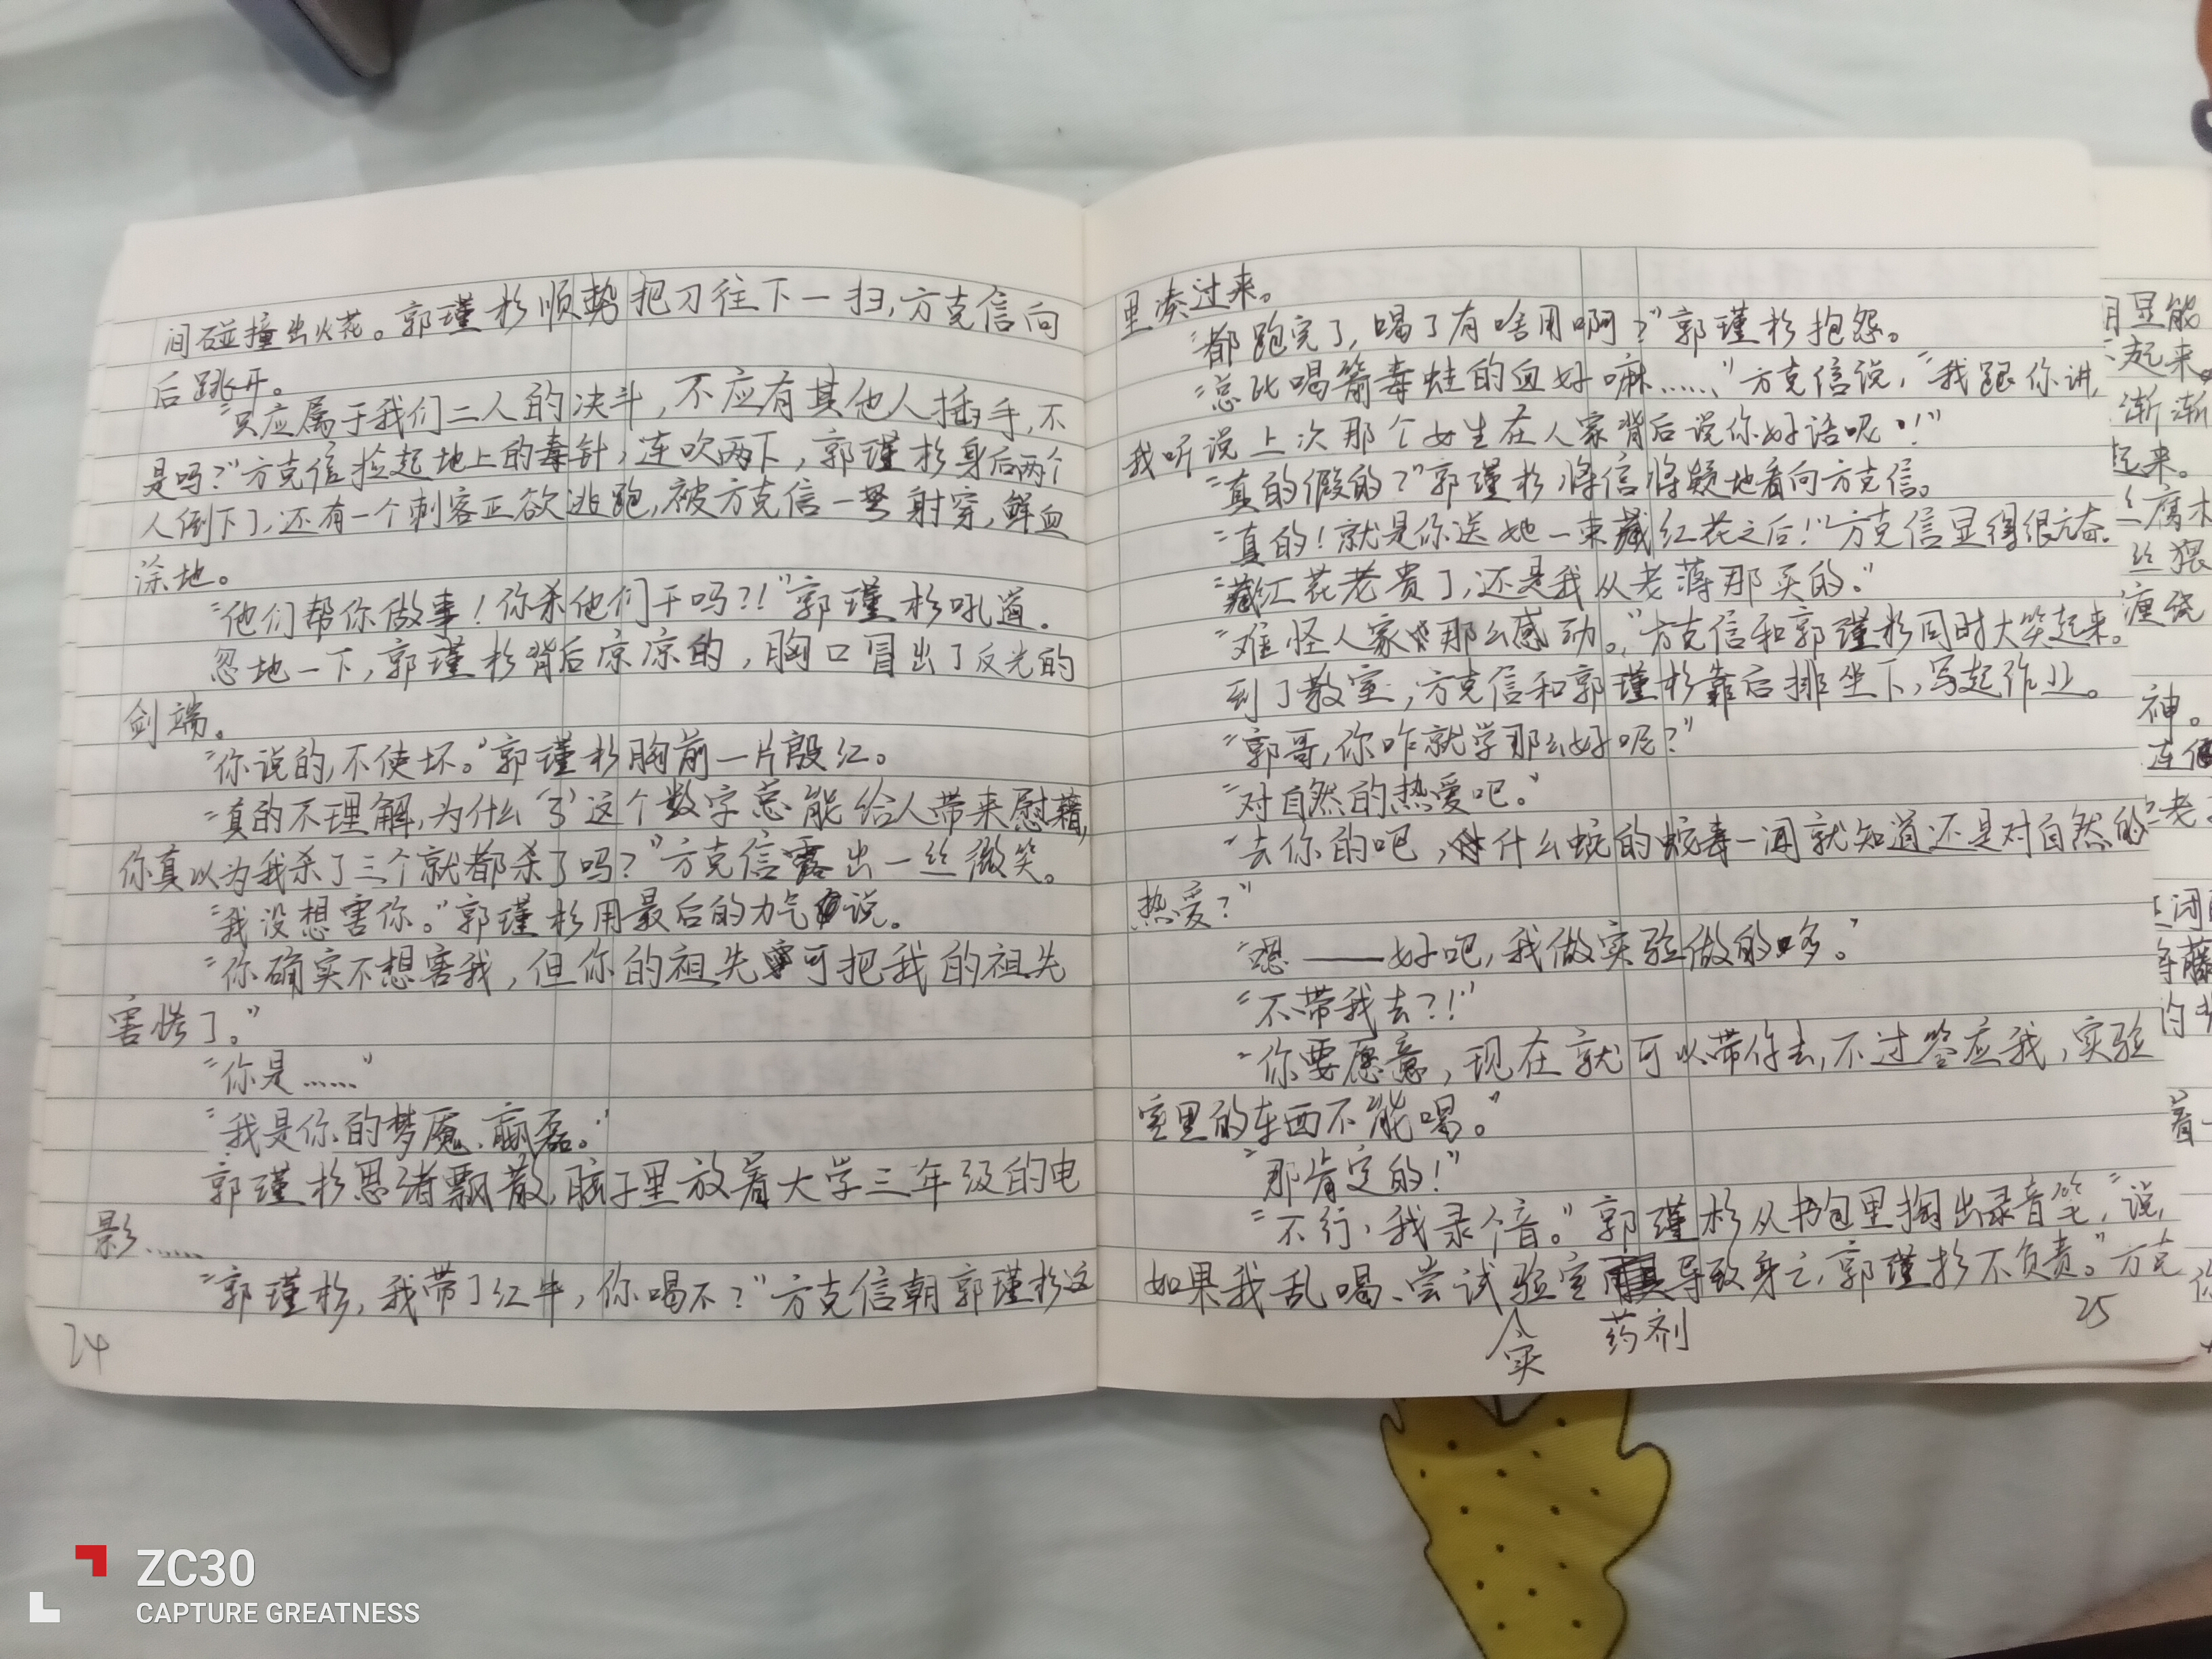 间碰撞出火花。郭瑾杉顺势把刀往下一扫，方克信向
后跳开。
“只应属于我们二人的决斗，不应有其他人插手，不
是吗？”方克信捡起地上的毒针，连吹两下，郭瑾杉身后两个
人倒下了，还有一个刺客正欲逃跑，被方克信一弩射穿，鲜血
涂地。
“他们帮你做事！你杀他们干吗？！”郭瑾杉吼道.
忽地一下，郭瑾杉背后凉凉的，胸口冒出了反光的
剑端。
“你说的，不使坏。”郭瑾杉胸前一片殷红。
“真的不理解，为什么‘3’这个数字总能给人带来慰藉，
你真以为我杀了三个就都杀了吗？”方克信露出一丝微笑。
“我没想害你。”郭瑾杉用最后的力气说。
“你确实不想害我，但你的祖先可把我的祖先
害惨了。”
“你是……”
“我是你的梦魇、嬴磊。”
郭瑾杉思绪飘散，脑子里放着大学三年级的电
影……
“郭瑾杉，我带了红牛，你喝不？”方克信朝郭瑾杉这
24
里凑过来。
“都跑完了，喝了有啥用啊？”郭瑾杉抱怨。
“总比喝箭毒蛙的血好嘛……”方克信说，“我跟你讲，
我听说上次那个女生在人家背后说你好话呢！”
“真的假的？”郭瑾杉将信将疑地看向方克信。
“真的！就是你送她一束藏红花之后！”方克信显得很亢奋.
“藏红花老贵了，还是我从老薄那买的。”
“难怪人家那么感动。”方克信和郭瑾杉同时大笑起来。
到了教室，方克信和郭瑾杉靠后排坐下，写起作业。
“郭哥，你咋就学那么好呢？”
“对自然的热爱吧。”
“去你的吧，什么蛇的蛇毒一闻就知道还是对自然的
热爱？”
“嗯——好吧，我做实验做的多。”
“不带我去？！”
“你要愿意，现在就可以带你去，不过答应我，实验
室里的东西不能喝。”
“那肯定的！”
“不行，我录个音。”郭瑾杉从书包里掏出录音笔，“说，
如果我乱喝、尝试验室导致身亡，郭瑾杉不负责。”方克
实
药剂
25
起来。
渐渐
起来。
腐木
神。